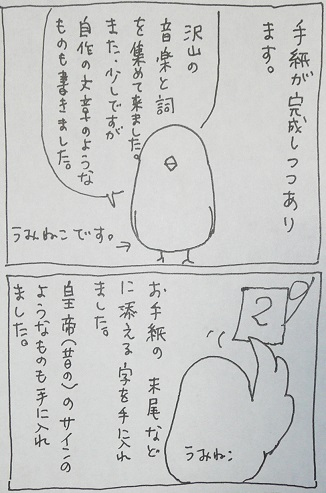 手紙が完成しつつあり
ます。
沢山の
音楽と詞
を集めて来ました。
また、少しですが
自作の文章のような
ものも書きました。
うみねこです。
2
お手紙の末尾など
に添える字を手に入れ
ました。
皇帝(昔の)のサインの
ようなものも手に入れ
ました。
うみねこ